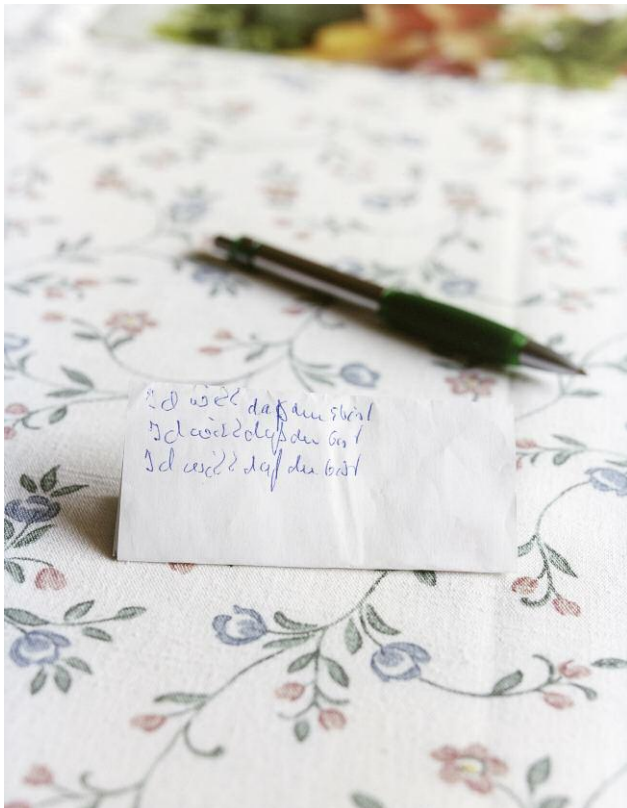 Ich will daß du bist
Ich will daß du bist
Ich will daß du bist